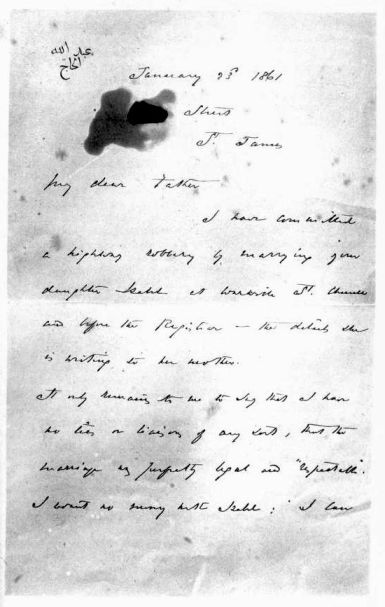 عبد الله
الحاج
January 23d 1861
Street
St. James
My dear Father
I have committed
a highway robbery by marrying your
daughter Isabel at Warwick St. Church
and before the Registrar — the details she
is writing to her mother.
It only remains to me to say that I have
no ties or liaisons of any sort, that the
marriage is perfectly legal and "respectable".
I want no money with Isabel; I can